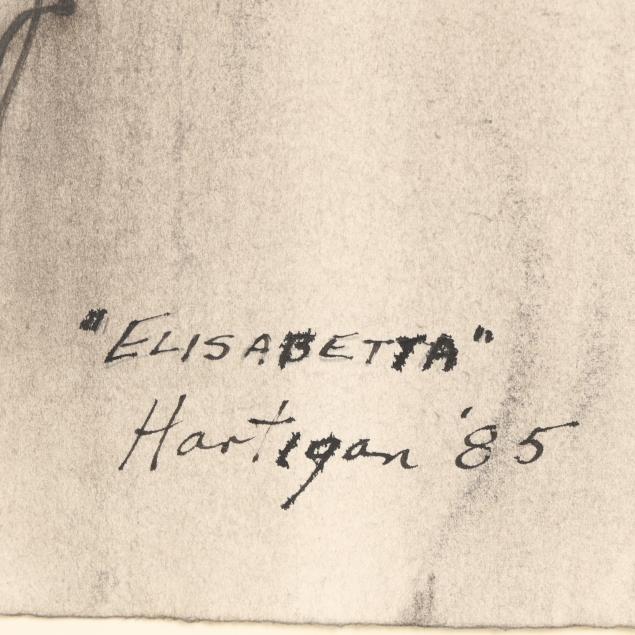 "ELISABETTA"
Hartigan '85